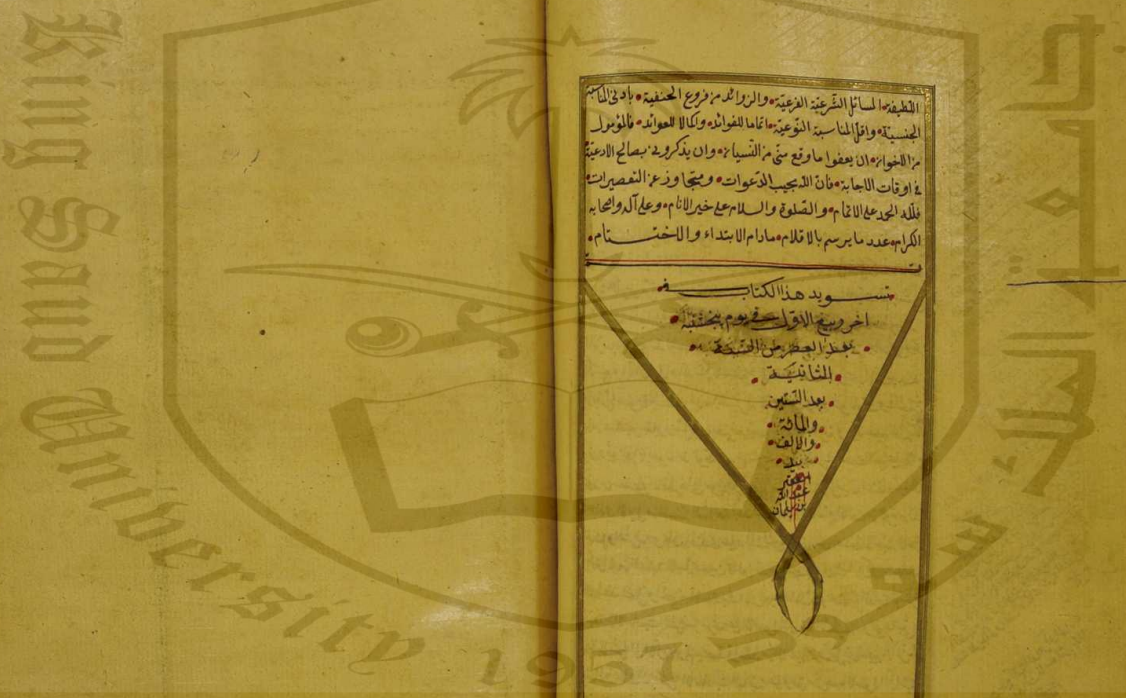 اللطيفة المسائل الشرعية الفرعية والزوائد من فروع الحنفية بادنى المناسبة
الجنسية واقل المناسبة النوعية اتماما للفوائد واكمالا للعوائد فالمؤمول
من الاخوان ان يعفوا ما وقع منى من النسيان وان يذكرونى بصالح الادعية
فى اوقات الاجابة فان الله يجيب الدعوات ومتجاوز عن التقصيرات
فلله الحمد على الاتمام والصلوة والسلام على خير الانام وعلى آله واصحابه
الكرام عدد ما يرسم بالاقلام مادام الابتداء والاختتام
تسويد هذا الكتاب فى
اخر ربيع الاول فى يوم پنجشنبه
بعد العصر من السنة
الثانية
بعد الستين
والمائة
والالف
بيد
الفقير
عبد الله
بن سليمان
King Saud University 1957
جامعة الملك سعود